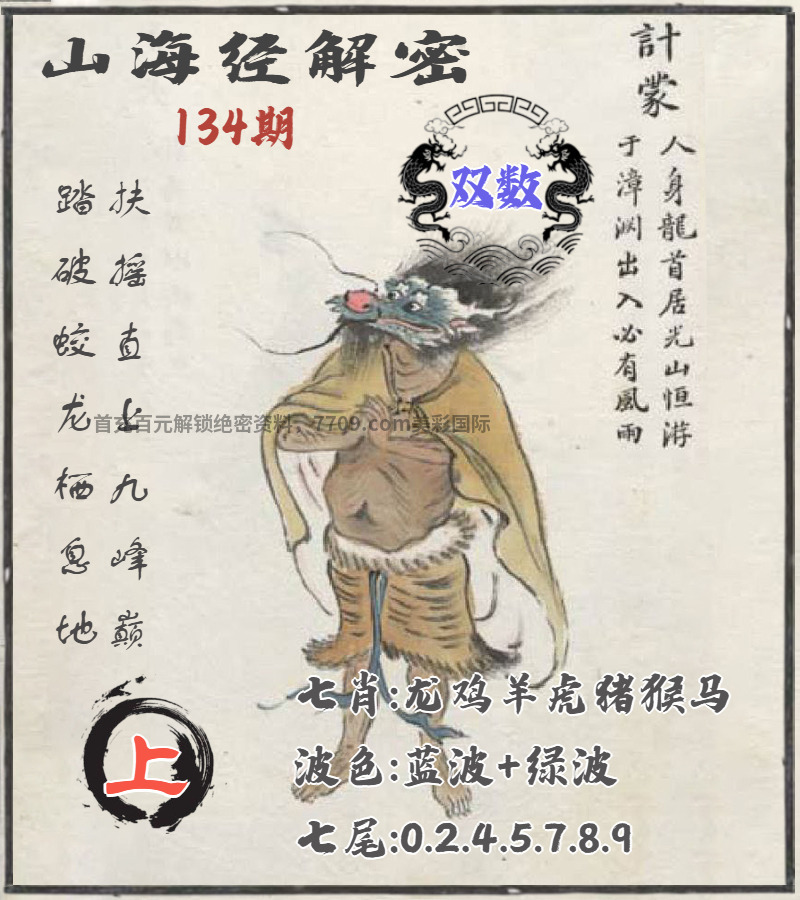 山海经解密
134期
計蒙
人身龍首居光山恒游
于漳渊出入必有風雨
双数
扶摇直上九峰巅
踏破蛟龙栖息地
首充百元解锁绝密资料，7709.com美彩国际
上
七肖:龙鸡羊虎猪猴马
波色:蓝波+绿波
七尾:0.2.4.5.7.8.9